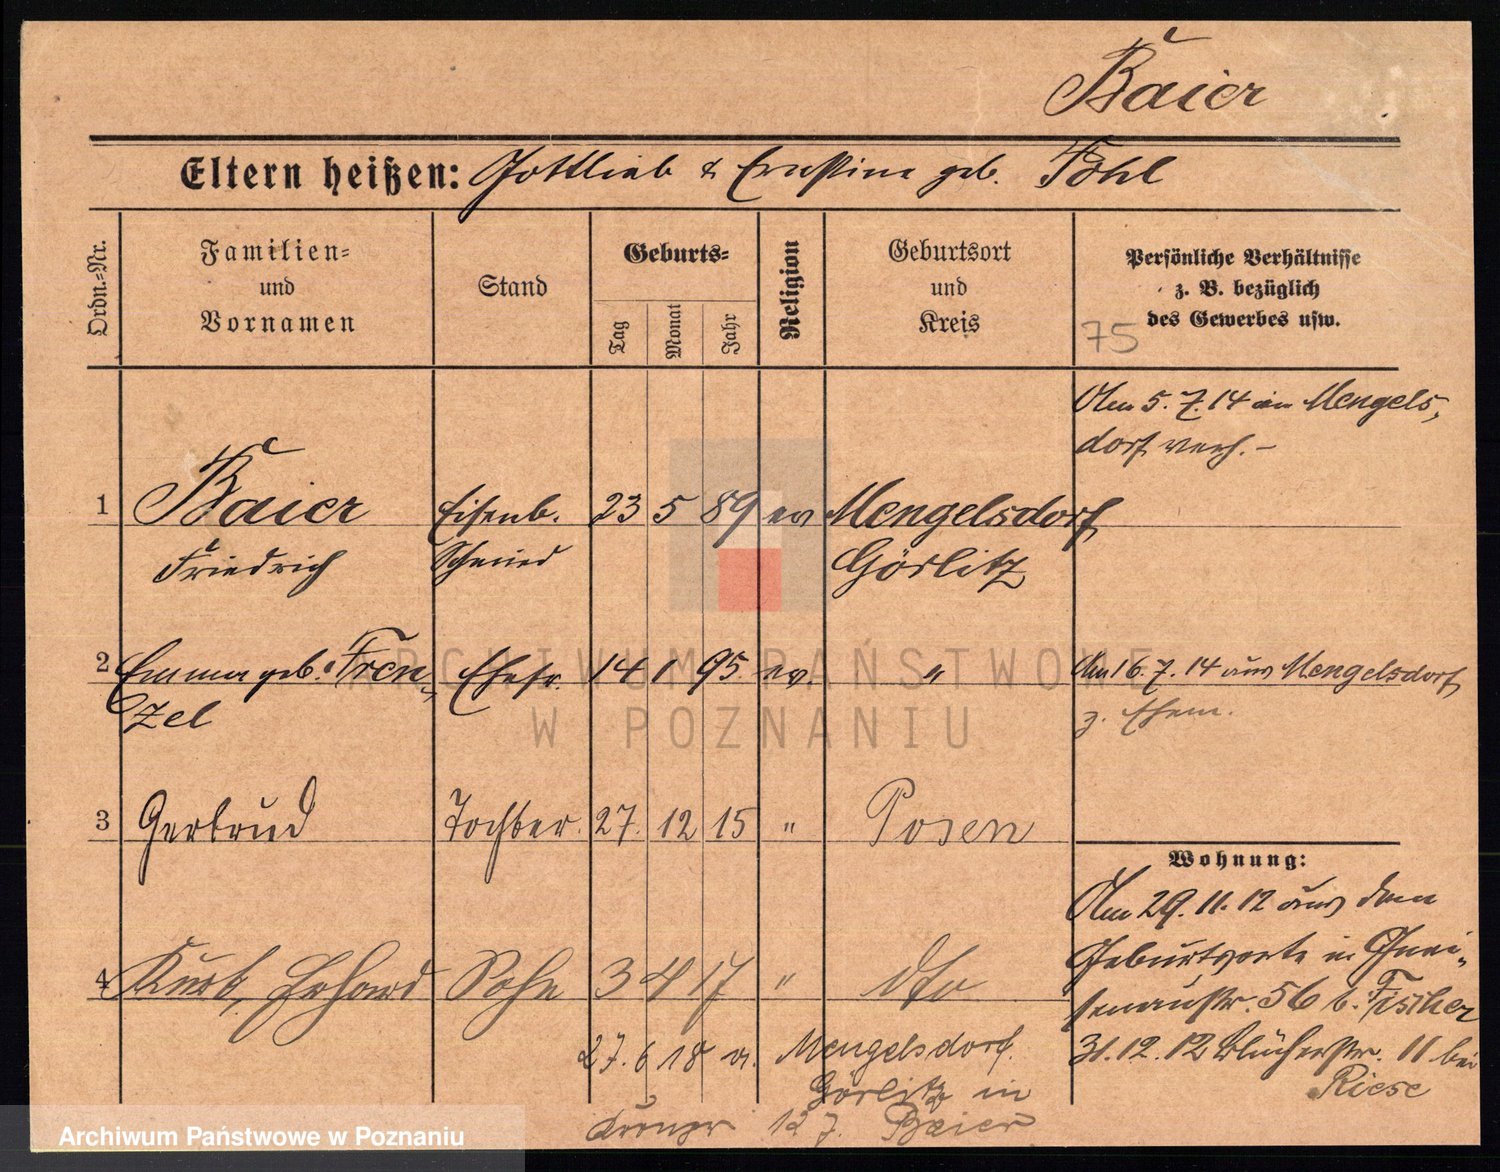 Baier
Eltern heißen: Gottlieb & Ernstine geb. Fohl
Ordn.=Nr.
Familien=
und
Vornamen
Stand
Geburts=
Tag
Monat
Jahr
Religion
Geburtsort
und
Kreis
Persönliche Verhältnisse
z. B. bezüglich
des Gewerbes usw.
75
Am 5.7.14 in Mengels,
dorf verh. –
1 Baier Eisenb. 23 5 89 ev Mengelsdorf
Friedrich Schmied Görlitz
2 Emma geb. Fren, Ehefr. 14 1 95. ev " Am 16.7.14 aus Mengelsdorf
zel z. Ehem.
3 Gertrud Tochter. 27. 12 15 " Posen
Wohnung:
Am 29.11.12 aus dem
Geburtsorte in Gnei,
4 Kurt, Erhard Sohn 3 4 17 " dto
senaustr. 56 b. Fischer
31.12.12 Blücherstr. 11 bei
Riese
27. 6 18 n. Mengelsdorf.
Görlitz in
127. Baier
ARCHIWUM PAŃSTWOWE
W POZNANIU
Archiwum Państwowe w Poznaniu